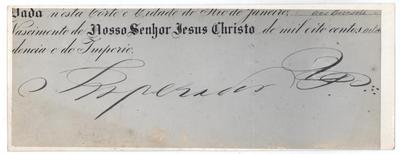 Dada nesta Corte e Cidade do Rio de Janeiro,
Nascimento de Nosso Senhor Jesus Christo de mil oito centos
dencia e do Imperio.
Imperador